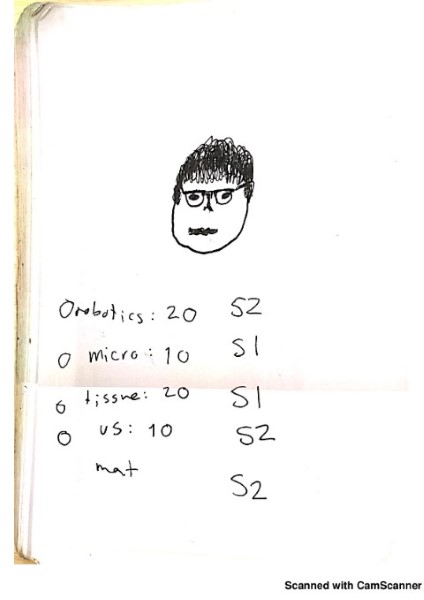 O robotics: 20 S2
O micro: 10 S1
O tissue: 20 S1
O US: 10 S2
mat S2
Scanned with CamScanner